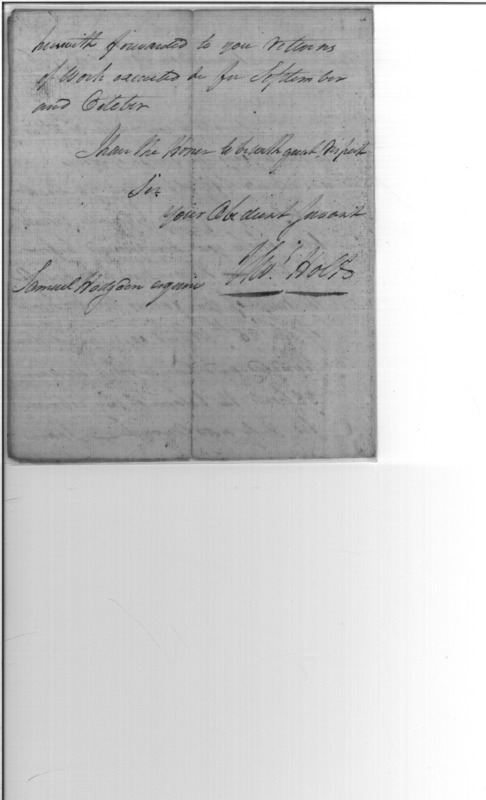 herewith forwarded to you returns
of Work executed &c for September
and October
I have the honor to be with great respect
Sir
Your Obedient Servant
Thos. Holt
Samuel Hodgdon esquire